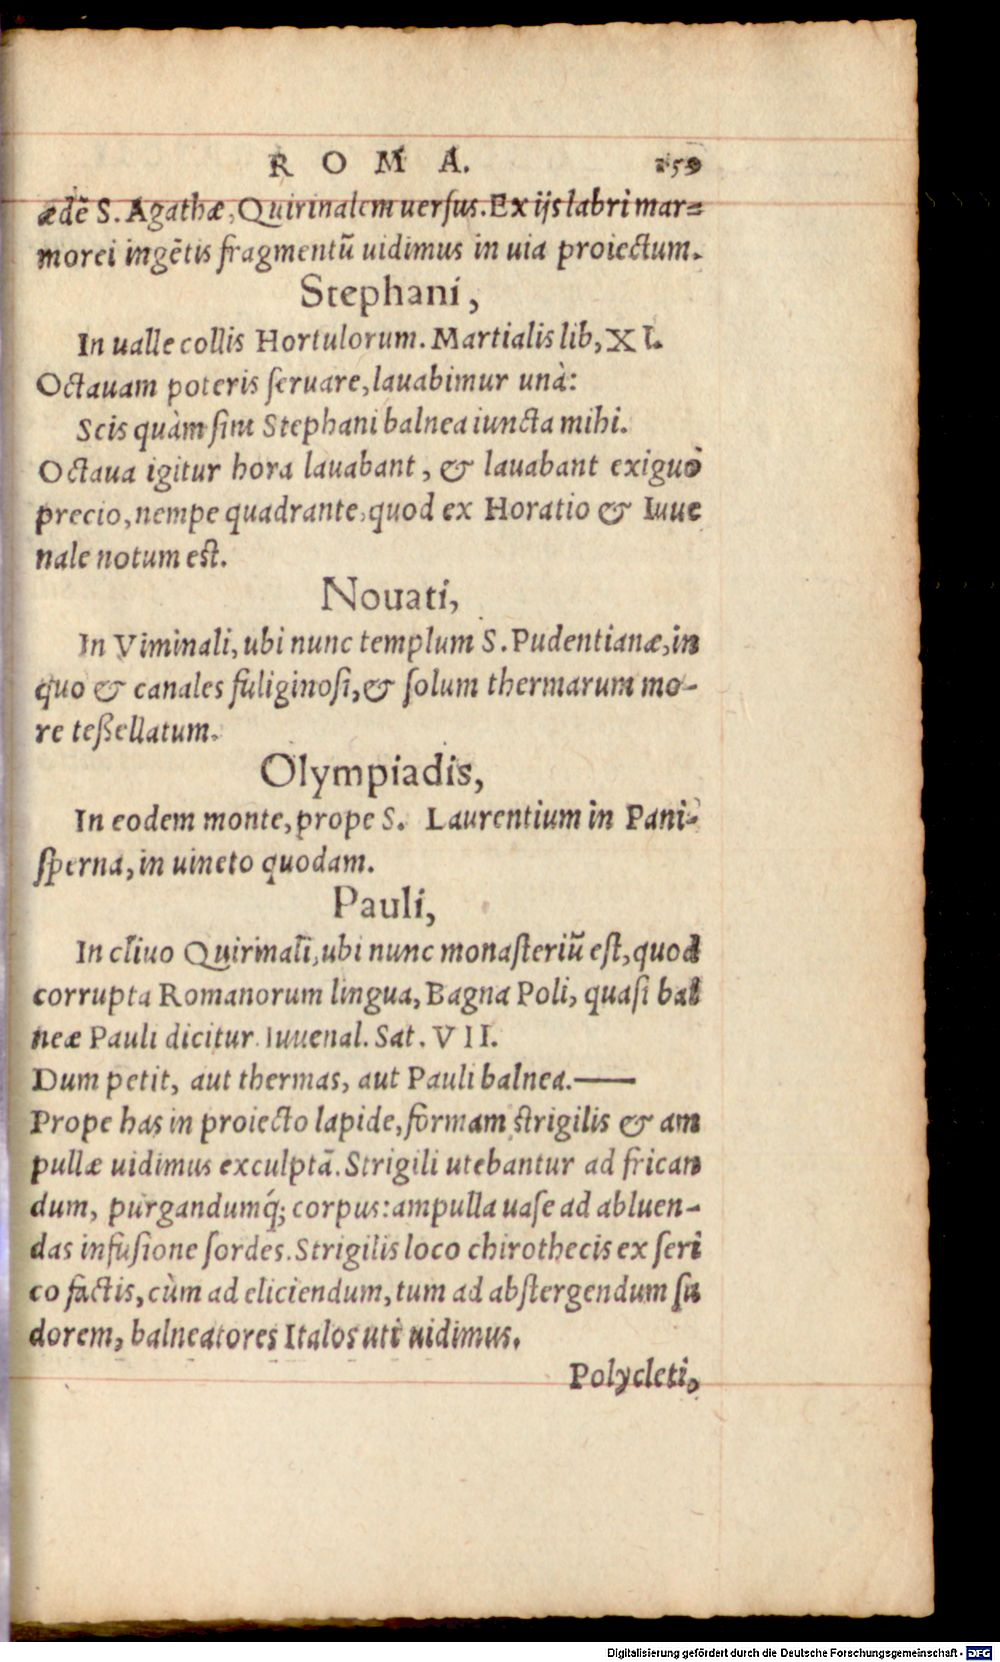 ROMA. 259
ædẽ S. Agathæ, Quirinalem uersus. Ex ijs labri mar=
morei ingẽtis fragmentũ uidimus in uia proiectum.
Stephani,
In ualle collis Hortulorum. Martialis lib, XI.
Octauam poteris seruare, lauabimur unà:
Scis quàm sint Stephani balnea iuncta mihi.
Octaua igitur hora lauabant, & lauabant exiguo
precio, nempe quadrante, quod ex Horatio & Iuue
nale notum est.
Nouati,
In Viminali, ubi nunc templum S. Pudentianæ, in
quo & canales fuliginosi, & solum thermarum mo-
re teßellatum.
Olympiadis,
In eodem monte, prope S. Laurentium in Pani-
sperna, in uineto quodam.
Pauli,
In cliuo Quirinali, ubi nunc monasteriũ est, quod
corrupta Romanorum lingua, Bagna Poli, quasi bal
neæ Pauli dicitur. Iuuenal. Sat. VII.
Dum petit, aut thermas, aut Pauli balnea.——
Prope has in proiecto lapide, formam strigilis & am
pullæ uidimus exculptã. Strigili utebantur ad frican
dum, purgandumq́; corpus: ampulla uase ad abluen-
das infusione sordes. Strigilis loco chirothecis ex seri
co factis, cùm ad eliciendum, tum ad abstergendum su
dorem, balneatores Italos uti uidimus.
Polycleti,
Digitalisierung gefördert durch die Deutsche Forschungsgemeinschaft - DFG